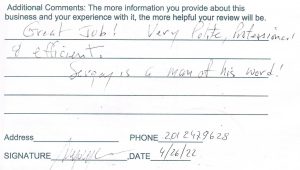 Additional Comments: The more information you provide about this
business and your experience with it, the more helpful your review will be.
Great Job! Very Polite, Professional
& efficient.
Sergey is a man of his word!
Address PHONE 2012479628
SIGNATURE ,DATE 4/26/22